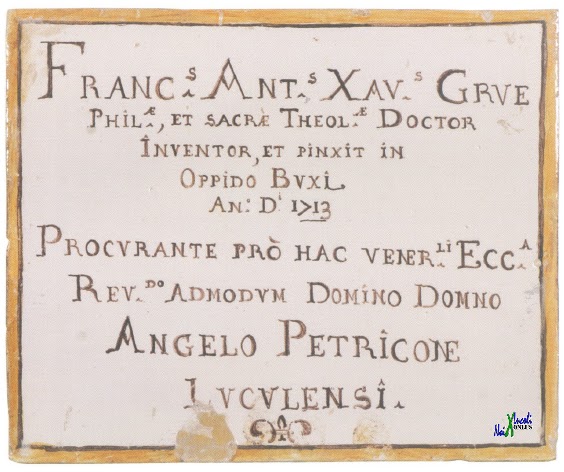 FRANC.ˢ ANT.ˢ XAV.ˢ GRVE
PHIL.Æ, ET SACRÆ THEOL.Æ DOCTOR
INVENTOR, ET PINXIT IN
OPPIDO BVXI
AN: D.ⁱ 1713
PROCVRANTE PRÒ HAC VENER.LI ECC.A
REV.DO ADMODVM DOMINO DOMNO
ANGELO PETRICONE
LVCVLENSI.
Noi X Lucoli
ONLUS